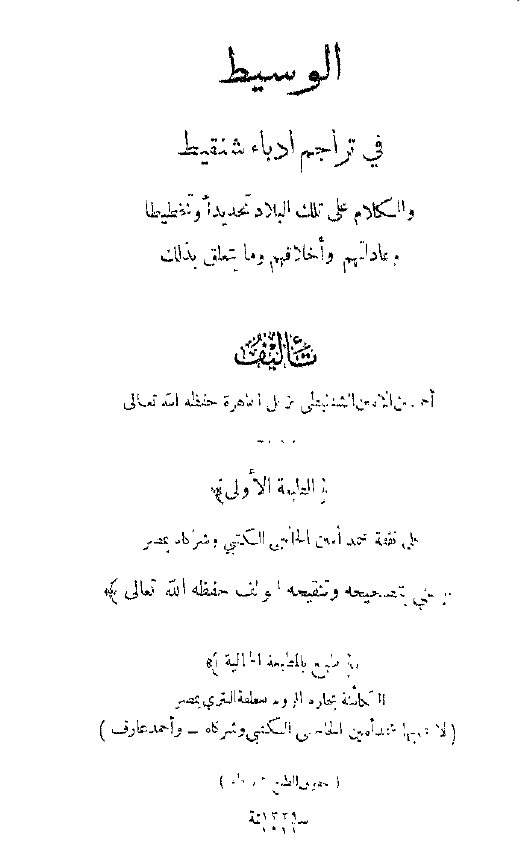 الوسيط
في تراجم أدباء شنقيط
والكلام على تلك البلاد تحديداً وتخطيطا
وعاداتهم وأخلاقهم وما يتعلق بذلك
تأليف
أحمد بن الامين الشنقيطي نزيل القاهرة حفظه الله تعالى
﴿ الطبعة الأولى ﴾
على نفقة محمد أمين الخانجي الكتبي وشركاه بمصر
عني بتصحيحه وتنقيحه المؤلف حفظه الله تعالى ﴾
﴿ طبع بالمطبعة الجمالية ﴾
الكائنة بحارة الروم بعطفة التتري بمصر
( لأصحابها محمد أمين الخانجي الكتبي وشركاه – وأحمد عارف )
( حقوق الطبع )
سنة ١٣٢٩
١٩١١